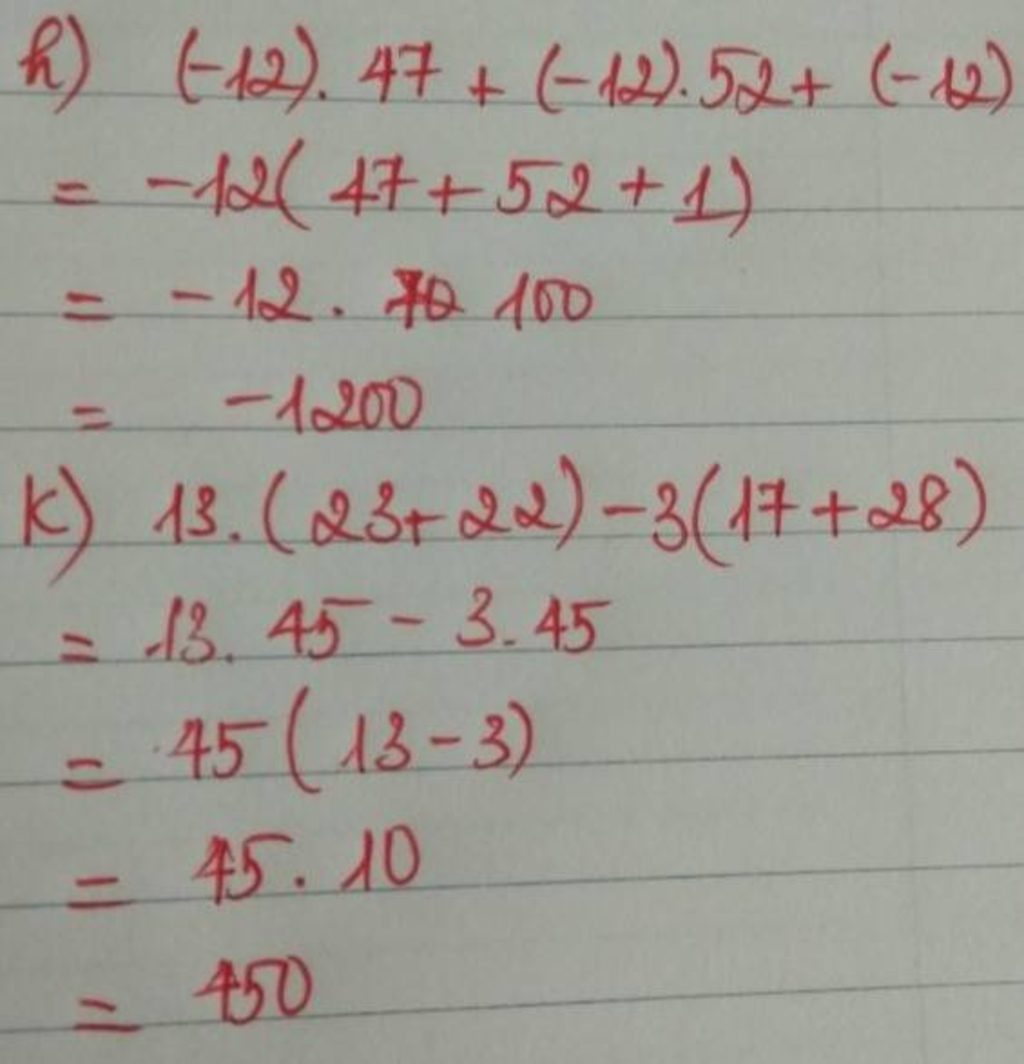 h) (-12). 47 + (-12).52 + (-12)
= -12( 47 + 52 + 1)
= -12. 100
= -1200
k) 13.(23+22)-3(17+28)
= 13. 45 - 3. 45
= 45 ( 13 - 3)
= 45. 10
= 450